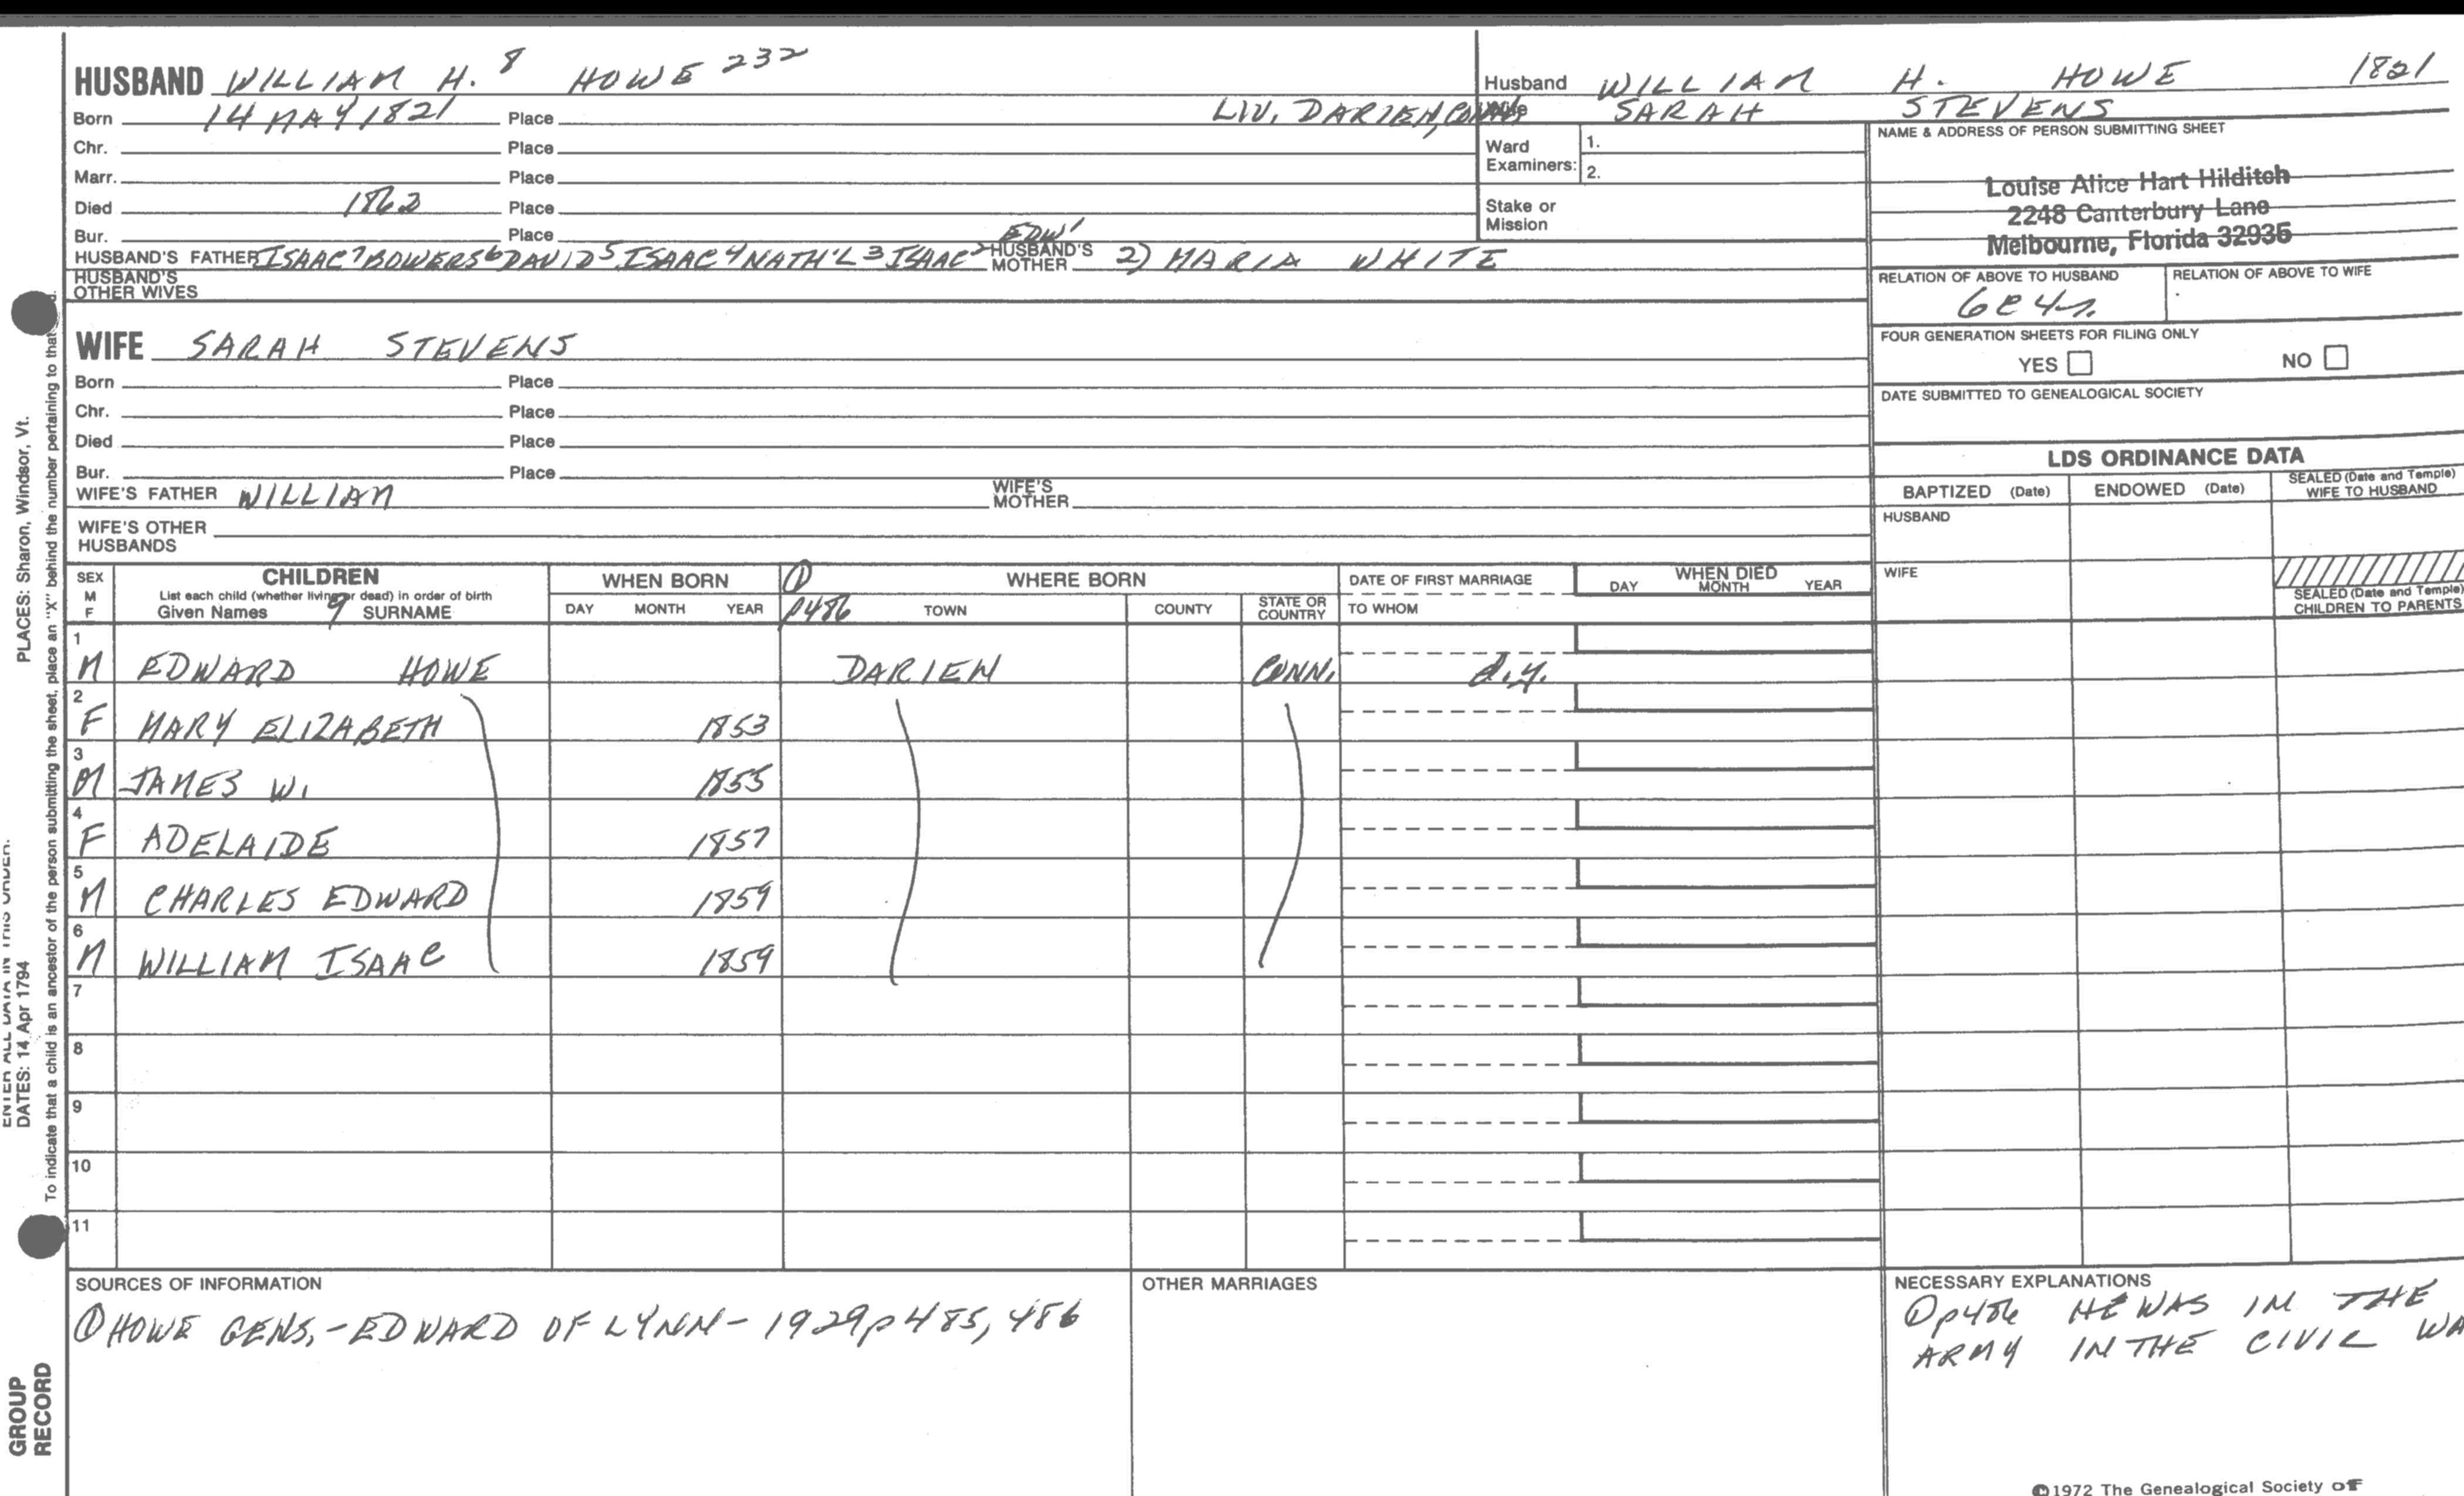 HUSBAND WILLIAM H. 8 HOWE 232
Born 14 MAY 1821 Place LIV. DARIEN,
Chr. Place
Marr. Place
Died 1862 Place
Bur. Place
HUSBAND'S FATHER ISAAC 7 BOWERS 6 DAVID 5 ISAAC 4 NATH'L 3 ISAAC 2 EDW' HUSBAND'S MOTHER 2) MARIA WHITE
HUSBAND'S OTHER WIVES
WIFE SARAH STEVENS
Born Place
Chr. Place
Died Place
Bur. Place
WIFE'S FATHER WILLIAM WIFE'S MOTHER
WIFE'S OTHER HUSBANDS
Husband WILLIAM H. HOWE 1821
Wife SARAH STEVENS
Ward Examiners: 1.
2.
Stake or Mission
NAME & ADDRESS OF PERSON SUBMITTING SHEET
Louise Alice Hart Hilditch
2248 Canterbury Lane
Melbourne, Florida 32935
RELATION OF ABOVE TO HUSBAND RELATION OF ABOVE TO WIFE
FOUR GENERATION SHEETS FOR FILING ONLY
YES NO
DATE SUBMITTED TO GENEALOGICAL SOCIETY
LDS ORDINANCE DATA
BAPTIZED (Date) ENDOWED (Date) SEALED (Date and Temple) WIFE TO HUSBAND
HUSBAND
WIFE
SEALED (Date and Temple) CHILDREN TO PARENTS
SEX M F CHILDREN WHEN BORN ① WHERE BORN DATE OF FIRST MARRIAGE WHEN DIED
List each child (whether living or dead) in order of birth
Given Names 9 SURNAME DAY MONTH YEAR p486 TOWN COUNTY STATE OR COUNTRY TO WHOM DAY MONTH YEAR
1 M EDWARD HOWE DARIEN CONN. d.y.
2 F MARY ELIZABETH 1853
3 M JAMES W. 1855
4 F ADELAIDE 1857
5 M CHARLES EDWARD 1859
6 M WILLIAM ISAAC 1859
7
8
9
10
11
SOURCES OF INFORMATION
① HOWE GENS.-EDWARD OF LYNN-1929 p485, 486
OTHER MARRIAGES
NECESSARY EXPLANATIONS
① p486 HE WAS IN THE
ARMY IN THE CIVIL WA
©1972 The Genealogical Society of
PLACES: Sharon, Windsor, Vt.
To indicate that a child is an ancestor of the person submitting the sheet, place an "X" behind the number pertaining to that
ENTER ALL DATA IN THIS ORDER:
DATES: 14 Apr 1794
GROUP
RECORD